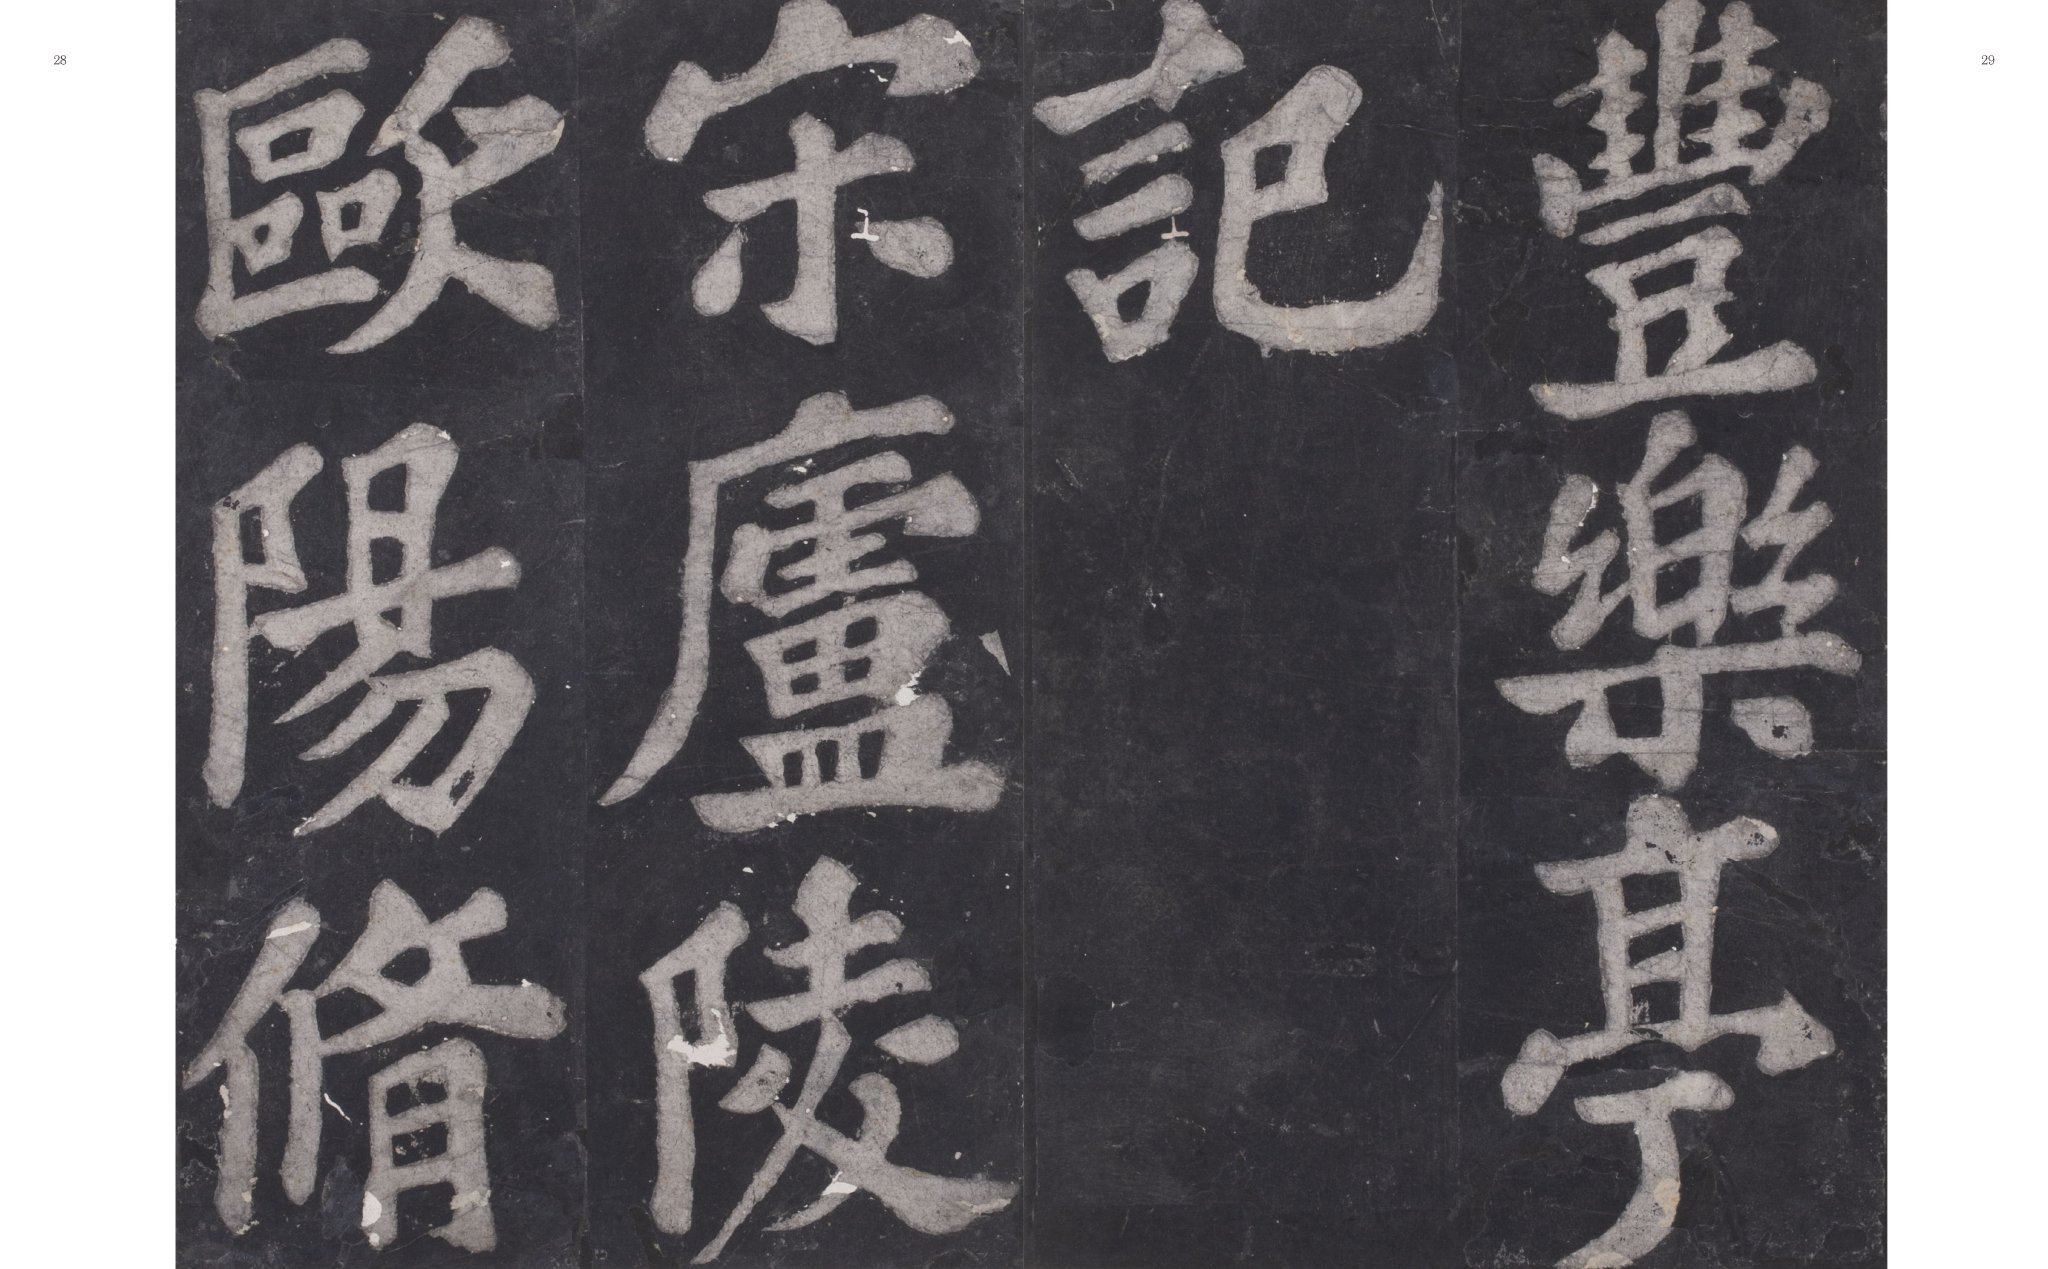 豐樂亭
記
宋廬陵
歐陽脩
28
29